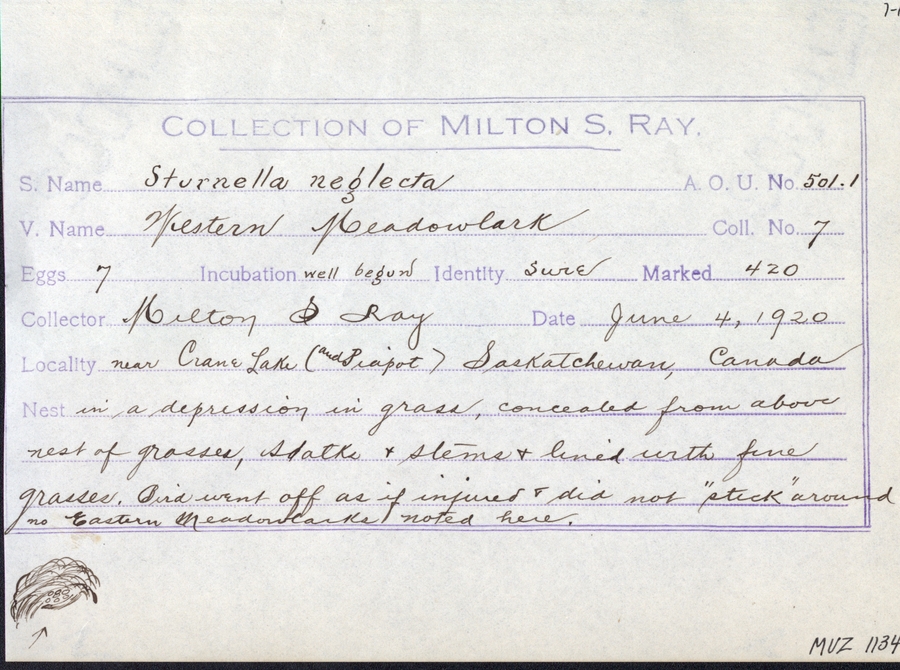 COLLECTION OF MILTON S. RAY.
S. Name Sturnella neglecta A. O. U. No. 501.1
V. Name Western Meadowlark Coll. No. 7
Eggs 7 Incubation well begun Identity sure Marked 420
Collector Milton S Ray Date June 4, 1920
Locality near Crane Lake (and Piapot) Saskatchewan, Canada
Nest in a depression in grass, concealed from above
nest of grasses, stalks + stems + lined with fine
grasses. Bird went off as if injured + did not "stick" around
no Eastern Meadowlarks noted here.
MVZ 1134